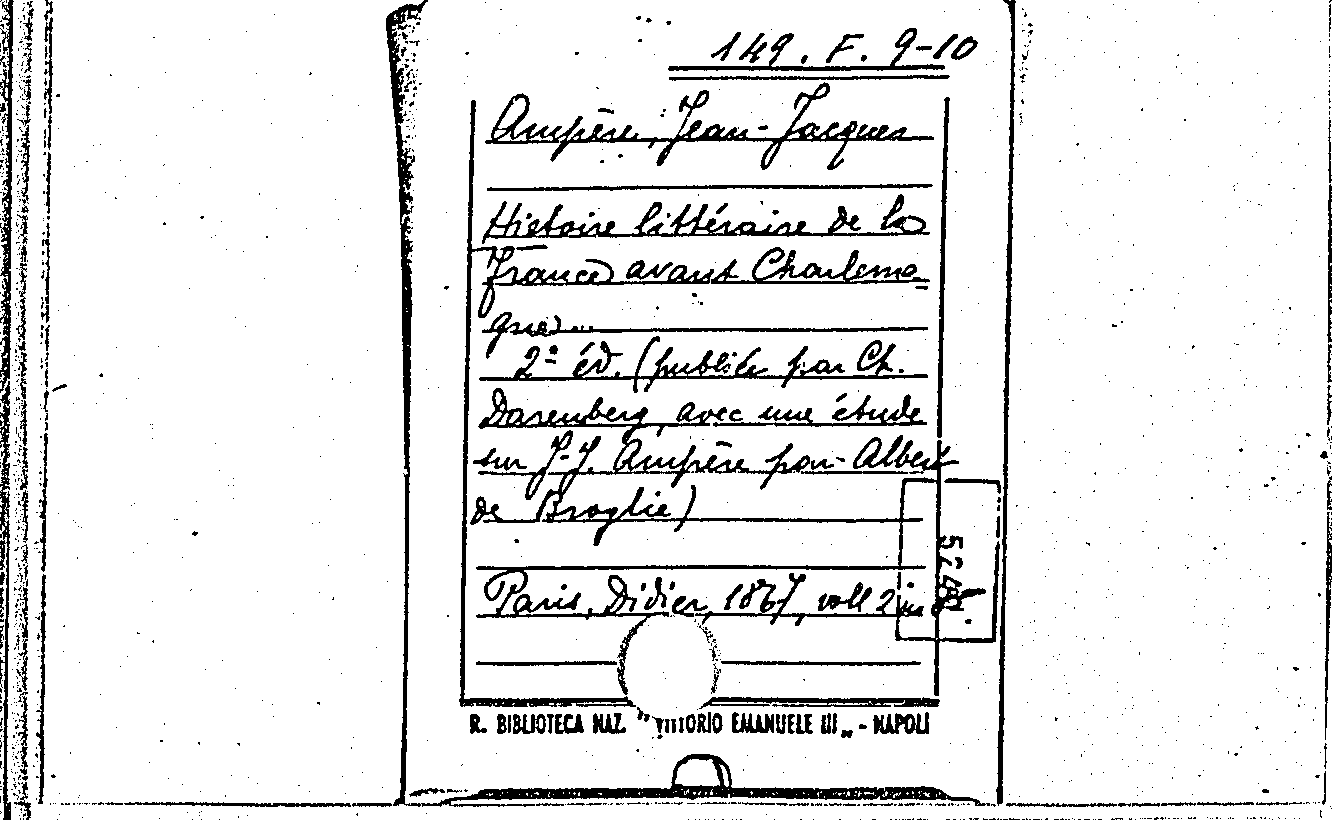 149. F. 9-10
Ampère, Jean-Jacques
Histoire littéraire de la
France avant Charlema=
gne...
2ª éd. (publiée par Ch.
Daremberg, avec une étude
sur J-J. Ampère par Albert
de Broglie)
Paris, Didier, 1867, voll 2 in 8
R. BIBLIOTECA NAZ. "VITTORIO EMANUELE III„ - NAPOLI